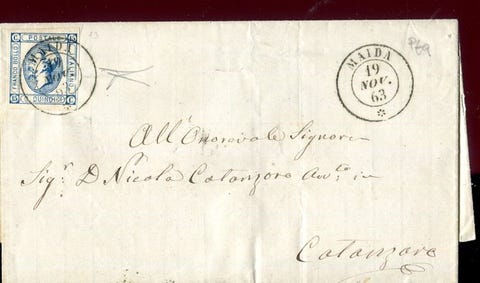 FRANCO BOLLO
POSTALE
ITALIANO
C QUINDICI C
MAIDA
MAIDA
19
NOV.
63
All'Onorevole Signore
Sigr. D. Nicola Catanzaro in
Catanzaro